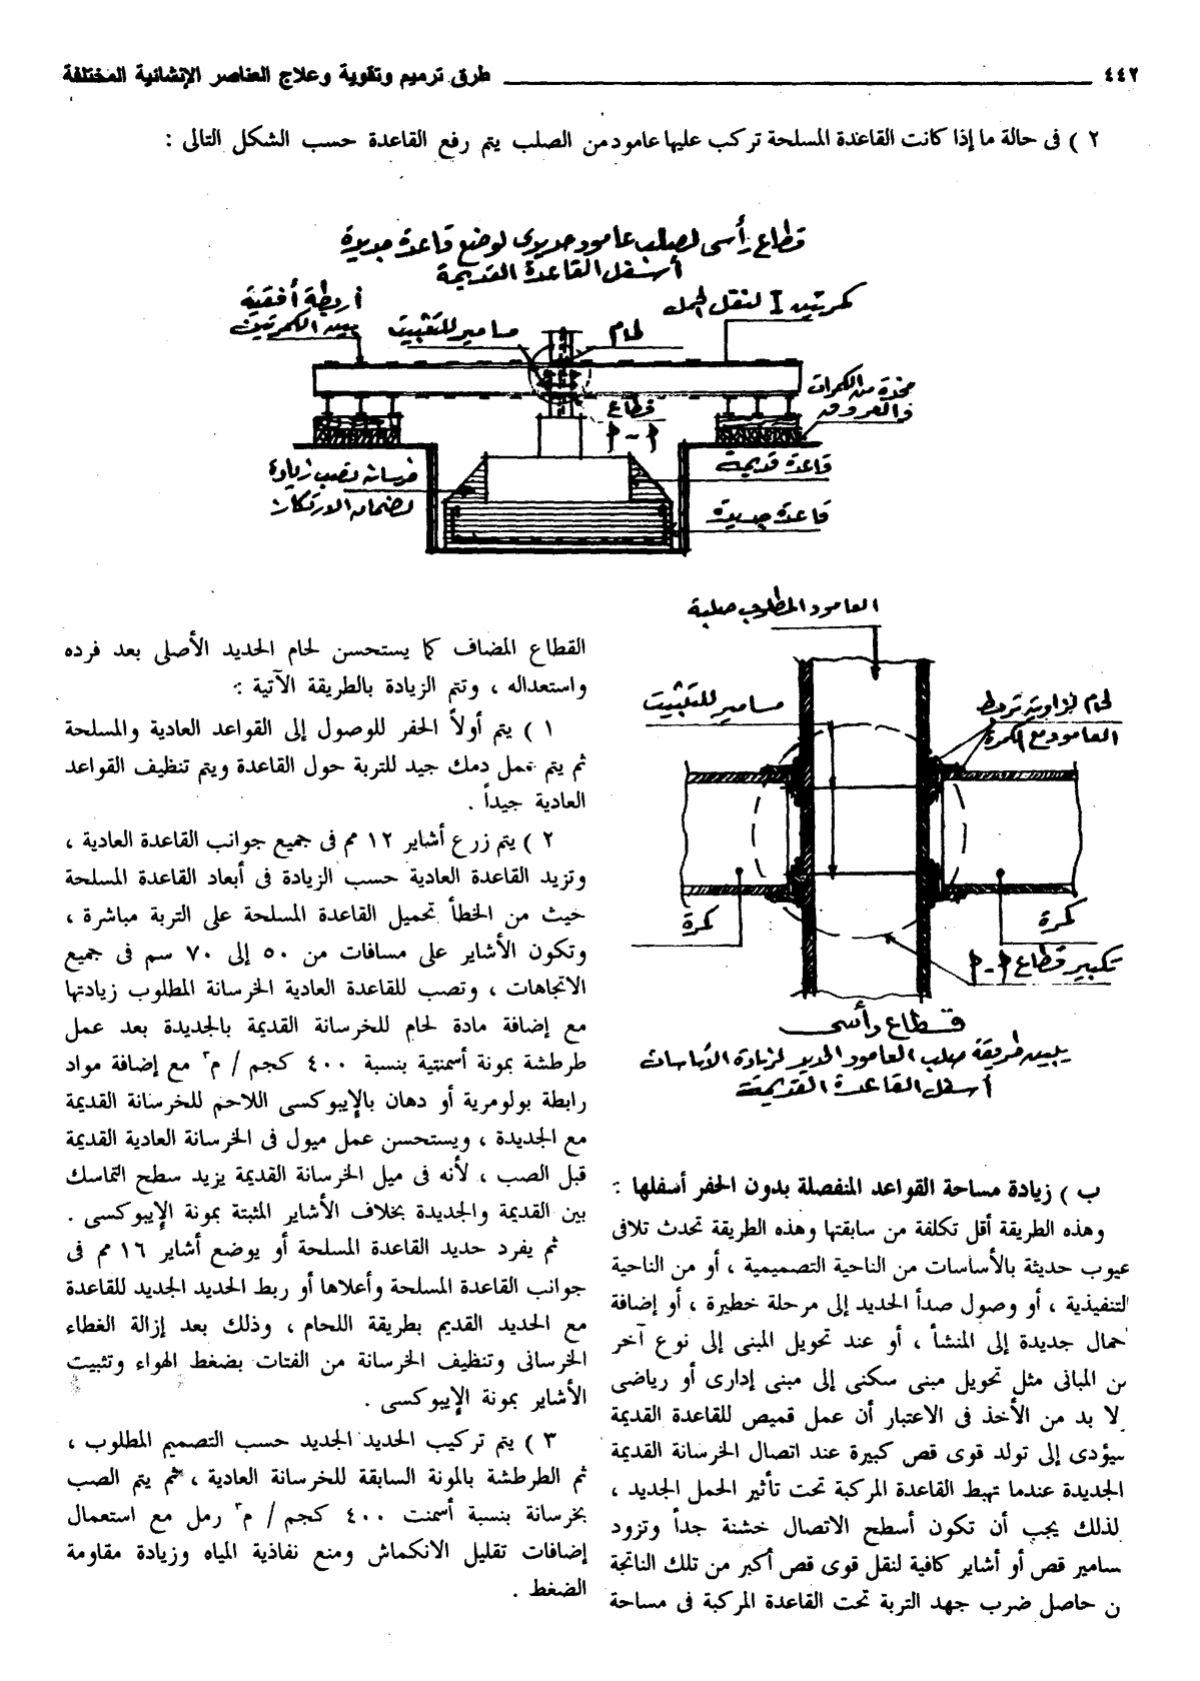 ٤٤٢ طرق ترميم وتقوية وعلاج العناصر الإنشائية المختلفة
٢ ) فى حالة ما إذا كانت القاعدة المسلحة تركب عليها عامود من الصلب يتم رفع القاعدة حسب الشكل التالى :
قطاع رأسى لصلب عامود حديدى لوضع قاعدة جديدة
أسفل القاعدة القديمة
كمرتين I لنقل الحمل
لحام
مسامير للتثبيت
أربطة أفقية
بين الكمرتين
مخدة من الكمرات
والعروق
قطاع
م - م
قاعدة قديمة
خرسانة تصب زيادة
لضمان الارتكاز
قاعدة جديدة
العامود المطلوب صلبة
مسامير للتثبيت
لحام لزاوية تربط
العامود مع الكمرة
كمرة
كمرة
تكبير قطاع م - م
قطاع رأسى
يبين طريقة صلب العامود الحديد لزيادة الأساسات
أسفل القاعدة القديمة
ب ) زيادة مساحة القواعد المنفصلة بدون الحفر أسفلها :
وهذه الطريقة أقل تكلفة من سابقتها وهذه الطريقة تحدث تلافى
عيوب حديثة بالأساسات من الناحية التصميمية ، أو من الناحية
التنفيذية ، أو وصول صدأ الحديد إلى مرحلة خطيرة ، أو إضافة
حمال جديدة إلى المنشأ ، أو عند تحويل المبنى إلى نوع آخر
ن المبانى مثل تحويل مبنى سكنى إلى مبنى إدارى أو رياضى
لا بد من الأخذ فى الاعتبار أن عمل قميص للقاعدة القديمة
سيؤدى إلى تولد قوى قص كبيرة عند اتصال الخرسانة القديمة
الجديدة عندما تهبط القاعدة المركبة تحت تأثير الحمل الجديد ،
لذلك يجب أن تكون أسطح الاتصال خشنة جداً وتزود
سامير قص أو أشاير كافية لنقل قوى قص أكبر من تلك الناتجة
ن حاصل ضرب جهد التربة تحت القاعدة المركبة فى مساحة
القطاع المضاف كما يستحسن لحام الحديد الأصلى بعد فرده
واستعداله ، وتتم الزيادة بالطريقة الآتية :
١ ) يتم أولاً الحفر للوصول إلى القواعد العادية والمسلحة
ثم يتم عمل دمك جيد للتربة حول القاعدة ويتم تنظيف القواعد
العادية جيداً .
٢ ) يتم زرع أشاير ١٢ مم فى جميع جوانب القاعدة العادية ،
وتزيد القاعدة العادية حسب الزيادة فى أبعاد القاعدة المسلحة
حيث من الخطأ تحميل القاعدة المسلحة على التربة مباشرة ،
وتكون الأشاير على مسافات من ٥٠ إلى ٧٠ سم فى جميع
الاتجاهات ، وتصب للقاعدة العادية الخرسانة المطلوب زيادتها
مع إضافة مادة لحام للخرسانة القديمة بالجديدة بعد عمل
طرطشة بمونة أسمنتية بنسبة ٤٠٠ كجم / م٣ مع إضافة مواد
رابطة بولومرية أو دهان بالإيبوكسى اللاحم للخرسانة القديمة
مع الجديدة ، ويستحسن عمل ميول فى الخرسانة العادية القديمة
قبل الصب ، لأنه فى ميل الخرسانة القديمة يزيد سطح التماسك
بين القديمة والجديدة بخلاف الأشاير المثبتة بمونة الإيبوكسى .
ثم يفرد حديد القاعدة المسلحة أو يوضع أشاير ١٦ مم فى
جوانب القاعدة المسلحة وأعلاها أو ربط الحديد الجديد للقاعدة
مع الحديد القديم بطريقة اللحام ، وذلك بعد إزالة الغطاء
الخرسانى وتنظيف الخرسانة من الفتات بضغط الهواء وتثبيت
الأشاير بمونة الإيبوكسى .
٣ ) يتم تركيب الحديد الجديد حسب التصميم المطلوب ،
ثم الطرطشة بالمونة السابقة للخرسانة العادية ، ثم يتم الصب
بخرسانة بنسبة أسمنت ٤٠٠ كجم / م٣ رمل مع استعمال
إضافات تقليل الانكماش ومنع نفاذية المياه وزيادة مقاومة
الضغط .